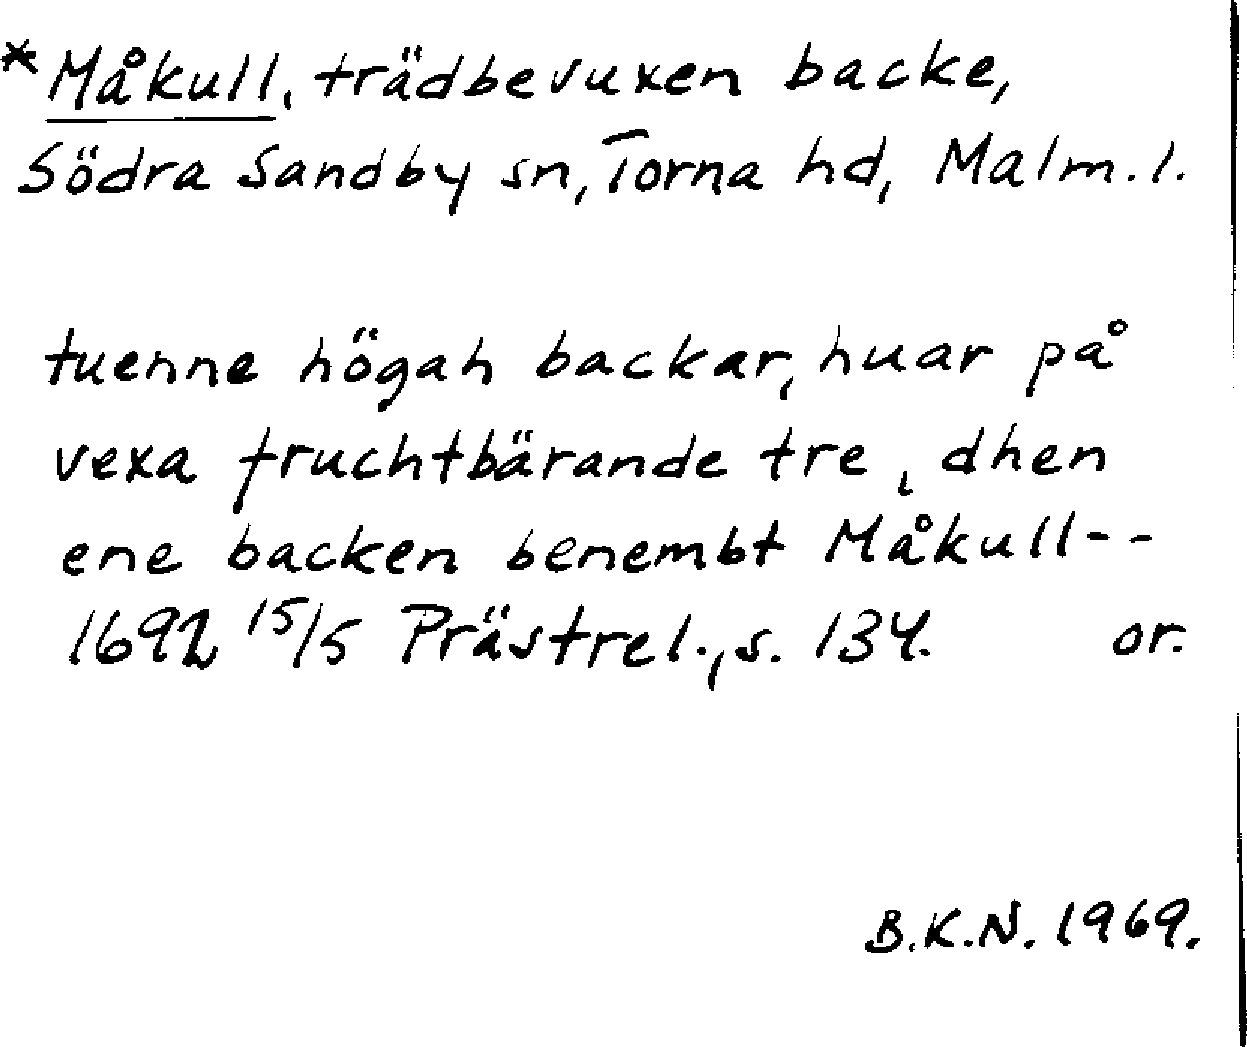 *Måkull, trädbevuxen backe,
Södra Sandby sn, Torna hd, Malm. l.
tuenne högah backar, huar på
vexa fruchtbärande tre, dhen
ene backen benembt Måkull--
1692 15/5 Prästrel., s. 134. or.
B.K.N. 1969.